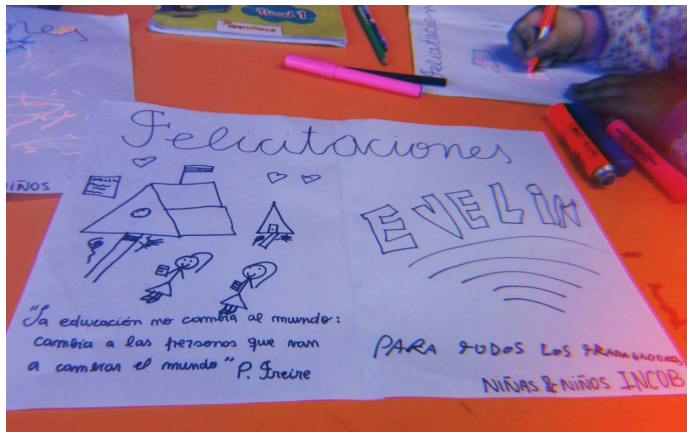 Nivel 1
Felicitaciones
EVELIN
"La educación no cambia al mundo:
cambia a las personas que van
a cambiar el mundo" P. Freire
PARA TODOS LOS TRABAJADORES
NIÑAS & NIÑOS INCOB
Felicitacion
ones
NIÑOS